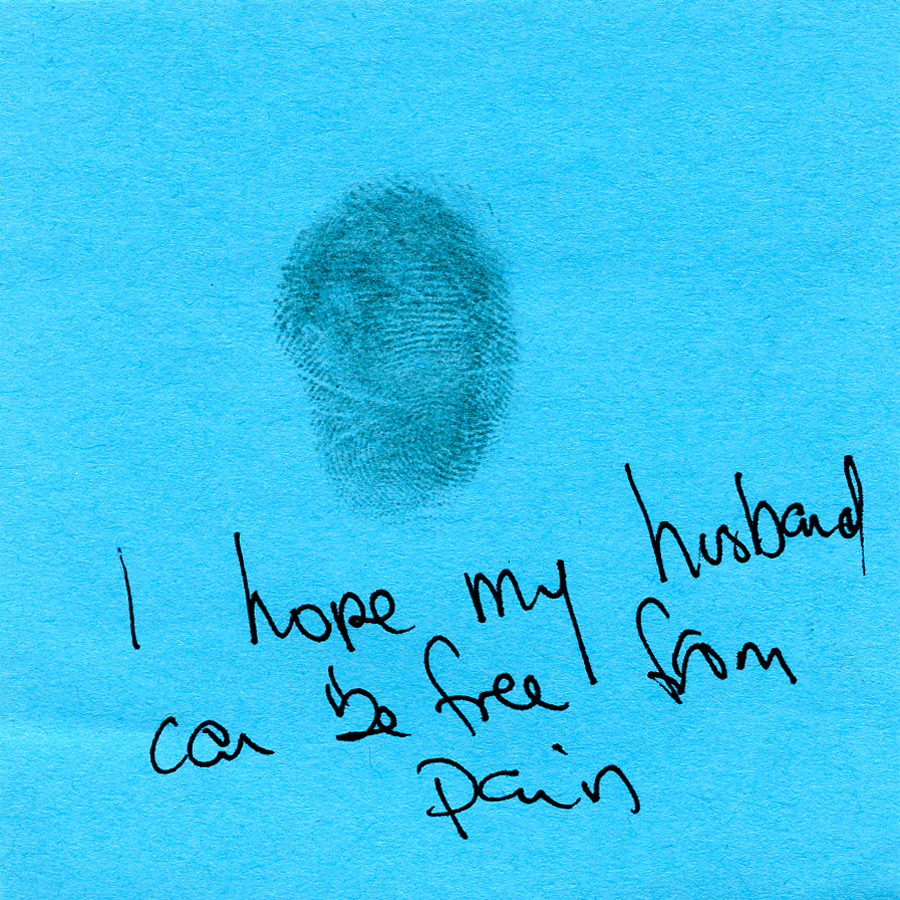 I hope my husband
can be free from
pain